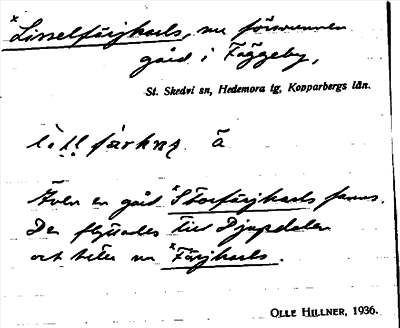 *Lisselfärjkarls, nu försvunnen
gård i Fäggeby,
St. Skedvi sn, Hedemora tg, Kopparbergs län.
färkaṣ ä
Även en gård *Storfärjkarls fanns.
Den flyttades till Djupdalen
och heter nu *Färjkarls.
OLLE HILLNER, 1936.